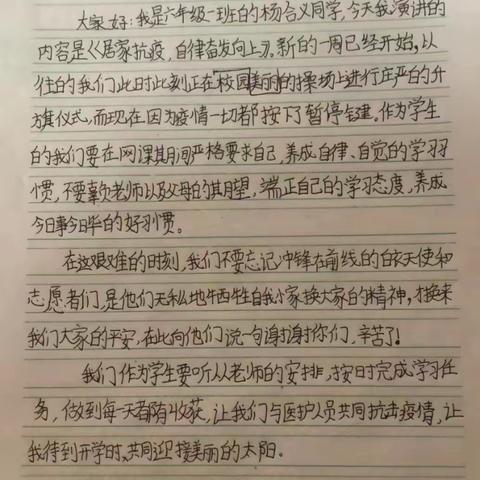 大家好:我是六年级一班的杨合义同学,今天我演讲的
内容是《居家抗疫,自律奋发向上》。新的一周已经开始,以
往的我们此时此刻正在校园美丽的操场上进行庄严的升
旗仪式,而现在因为疫情一切都按下了暂停键。作为学生
的我们要在网课其期间严格要求自己,养成自律、自觉的学习习
惯,不要辜负老师以及父母的期望,端正自己的学习态度,养成
今日事今日毕的好习惯。
在这艰难的时刻,我们不要忘记冲锋在前线的白衣天使和
志愿者们,是他们无私地牺牲自我小家换大家的精神,才换来
我们大家的平安,在此向他们说一句谢谢你们,辛苦了!
我们作为学生要听从老师的安排,按时完成学习任
务,做到每一天都有收获,让我们与医护人员共同抗击疫情,让
我待到开学时,共同迎接美丽的太阳。